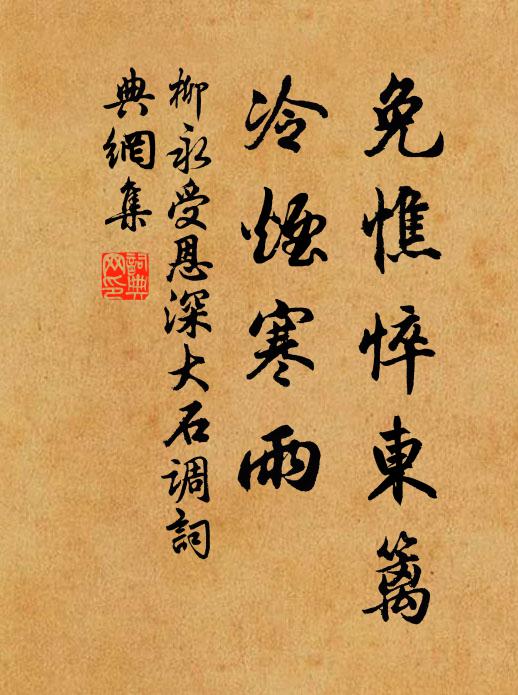 免憔悴東籬
冷煙寒雨
柳永受恩深大石调詞
典網集
詞典網印